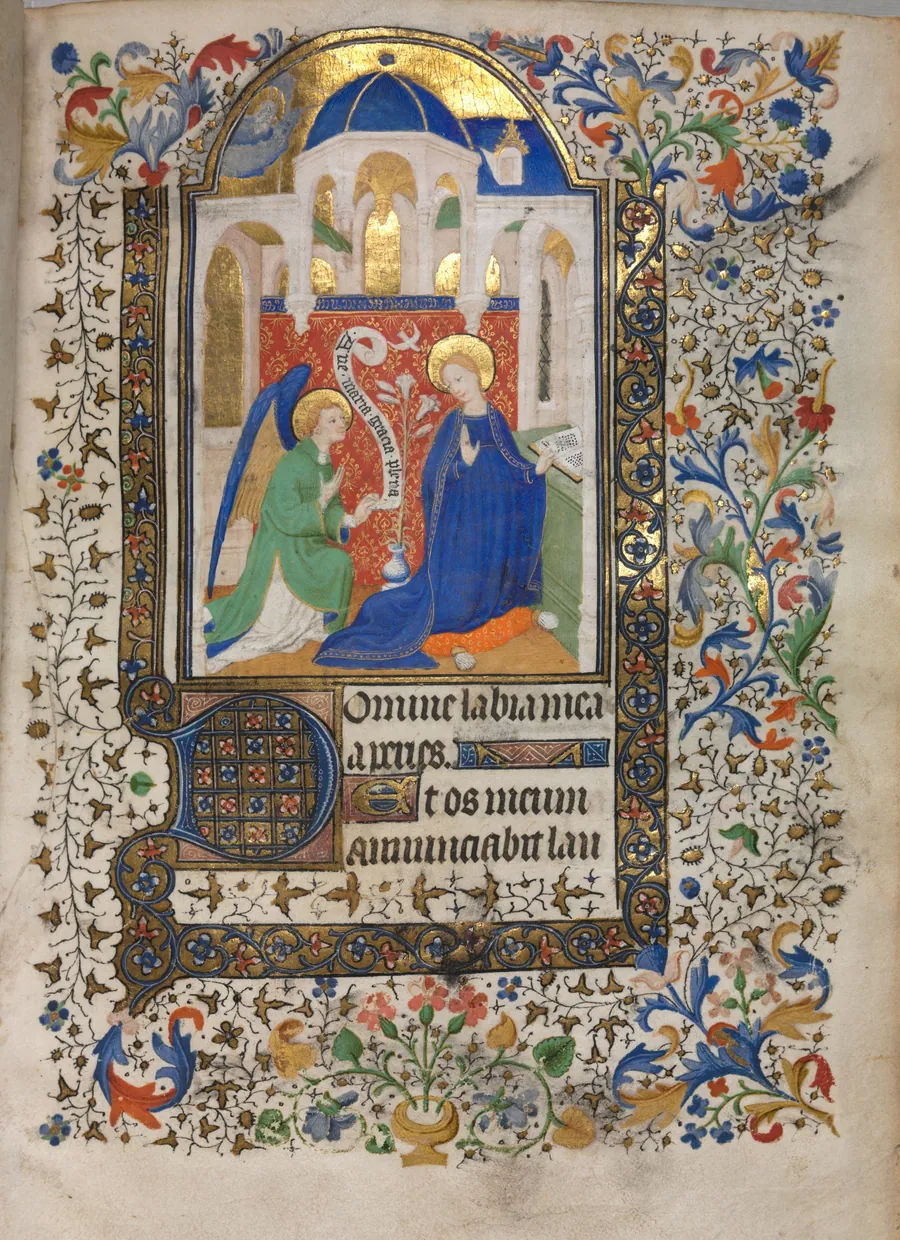 Aue maria gracia plena
Domine labia mea
aperies.
Et os meum
Annunciabit lau